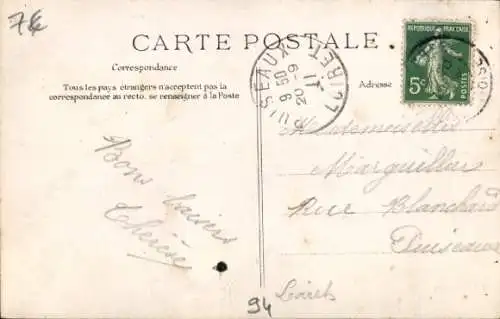 7€
CARTE POSTALE
Correspondance
Tous les pays étrangers n'acceptent pas la
correspondance au recto. se renseigner à la Poste
Adresse
REPUBLIQUE FRANÇAISE
5c
PUISEAUX
LOIRET
Bons baisers
Thérèse
Mademoiselle
Marguillier
Rue Blanchard
Puiseaux
Loiret
94